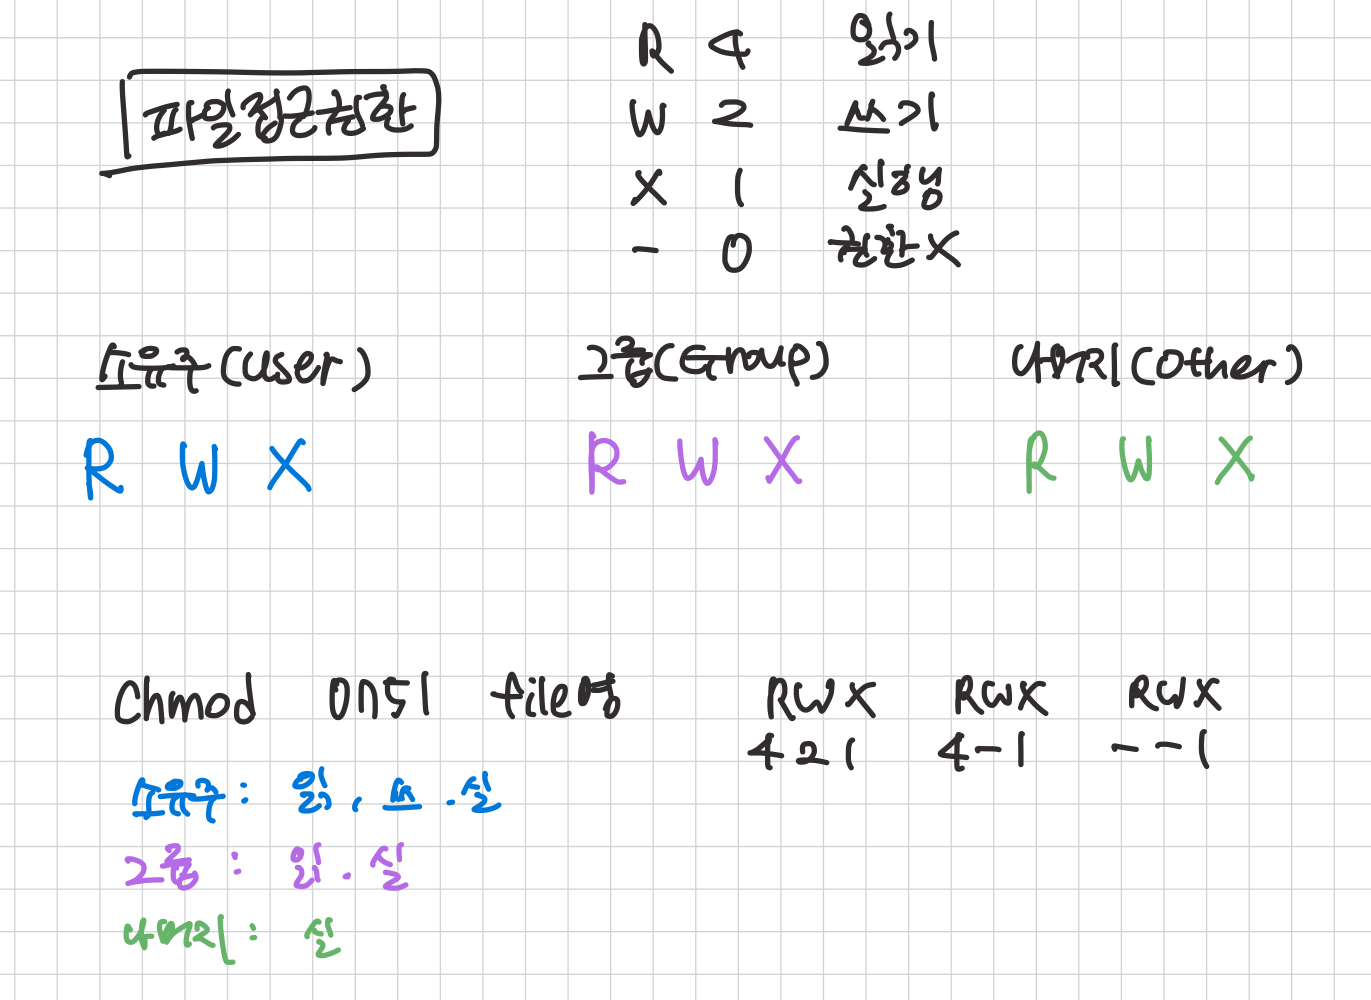 파일접근권한
R 4 읽기
W 2 쓰기
X 1 실행
- 0 권한X
소유주(user) 그룹(Group) 나머지(other)
R W X R W X R W X
Chmod 0751 file명 RWX RWX RWX
4 2 1 4 - 1 - - 1
소유주 : 읽, 쓰. 실
그룹 : 읽. 실
나머지 : 실